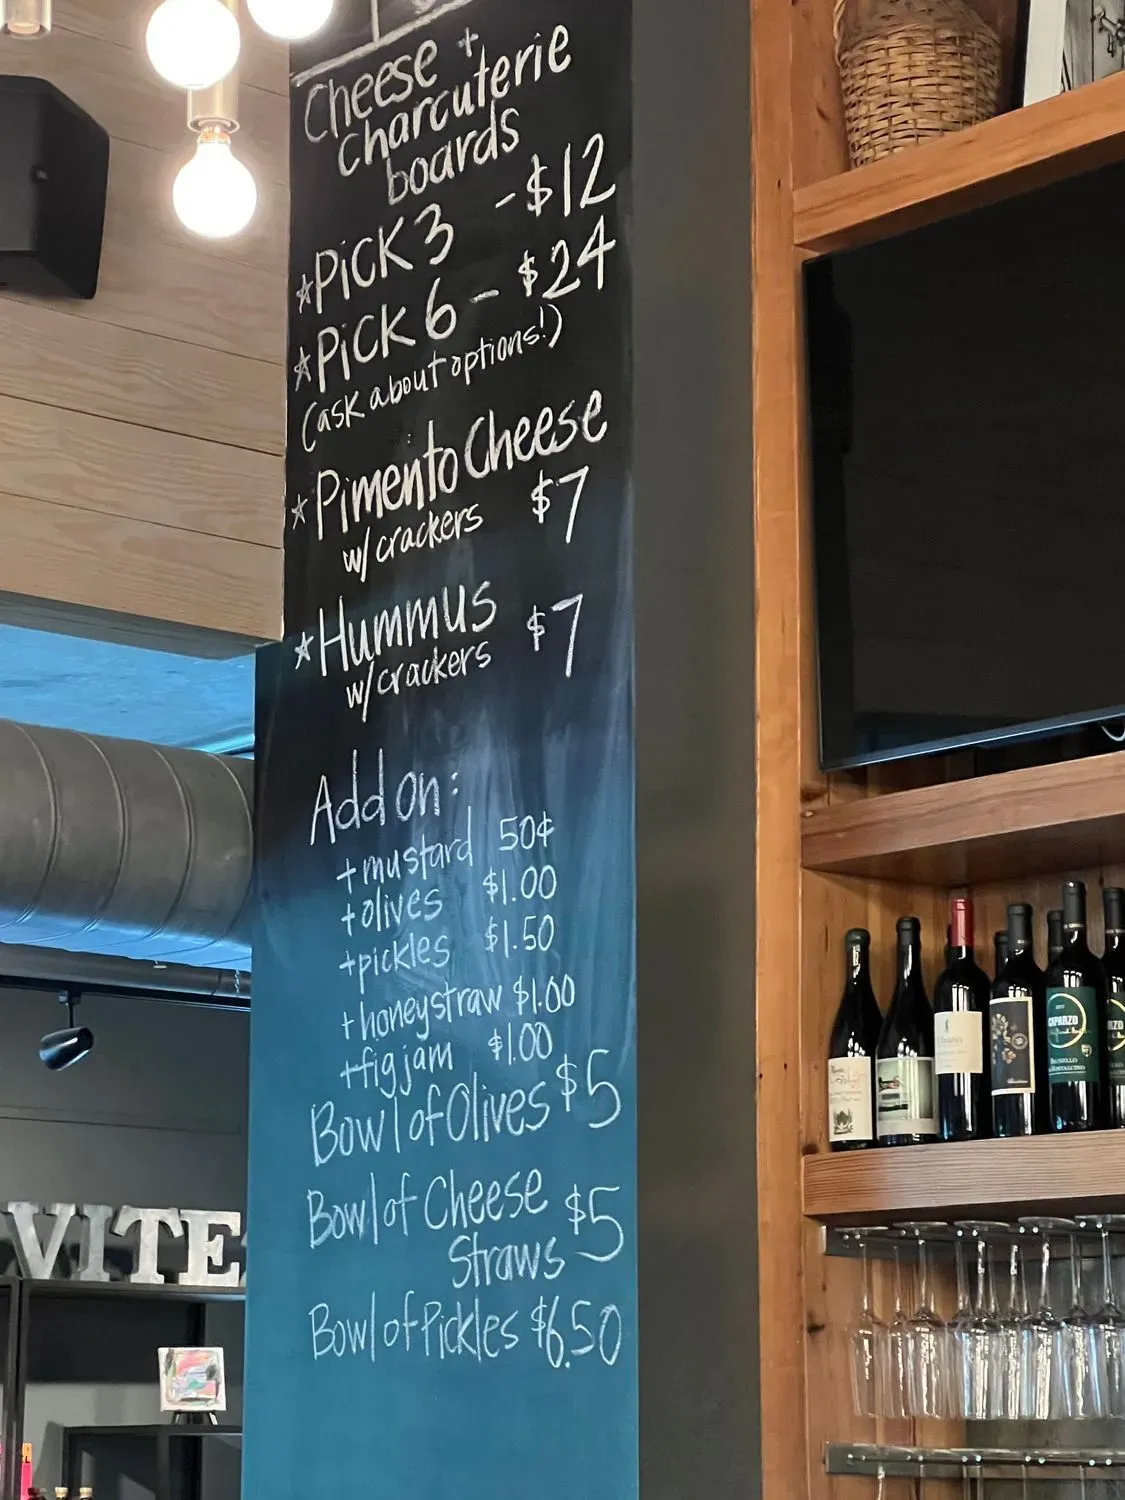 Cheese +
charcuterie
boards
☆PiCK 3 - $12
☆PiCK 6 - $24
(ask about options!)
☆Pimento Cheese
w/ crackers $7
☆Hummus $7
w/ crackers
Add on:
+mustard 50¢
+olives $1.00
+pickles $1.50
+honeystraw $1.00
+fig jam $1.00
Bowl of Olives $5
Bowl of Cheese $5
Straws
Bowl of Pickles $6.50
VITE
CAPARZO
BRUNELLO
MONTALCINO